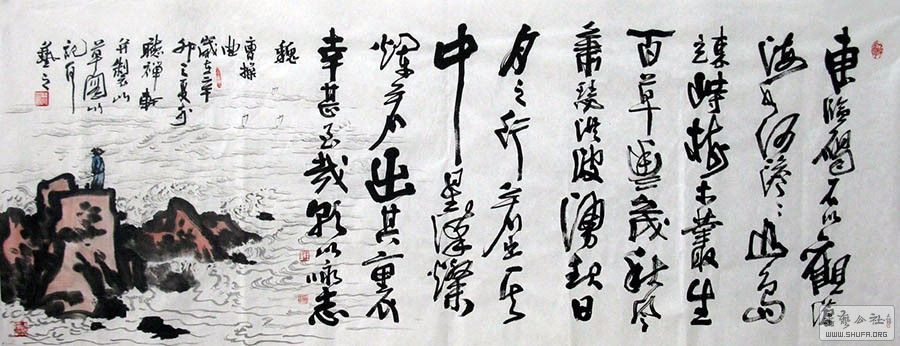 東臨碣石以觀滄
海水何澹〻山島
竦峙樹木叢生
百草豐茂秋風
蕭瑟洪波湧起日
月之行若出其
中星漢燦
爛若出其裏
幸甚至哉歌以詠志
魏
曹操
曲
歲在辛
卯之夏於
聽禪軒
并製
草圖以
記
藝之
WWW.SHUFA.ORG